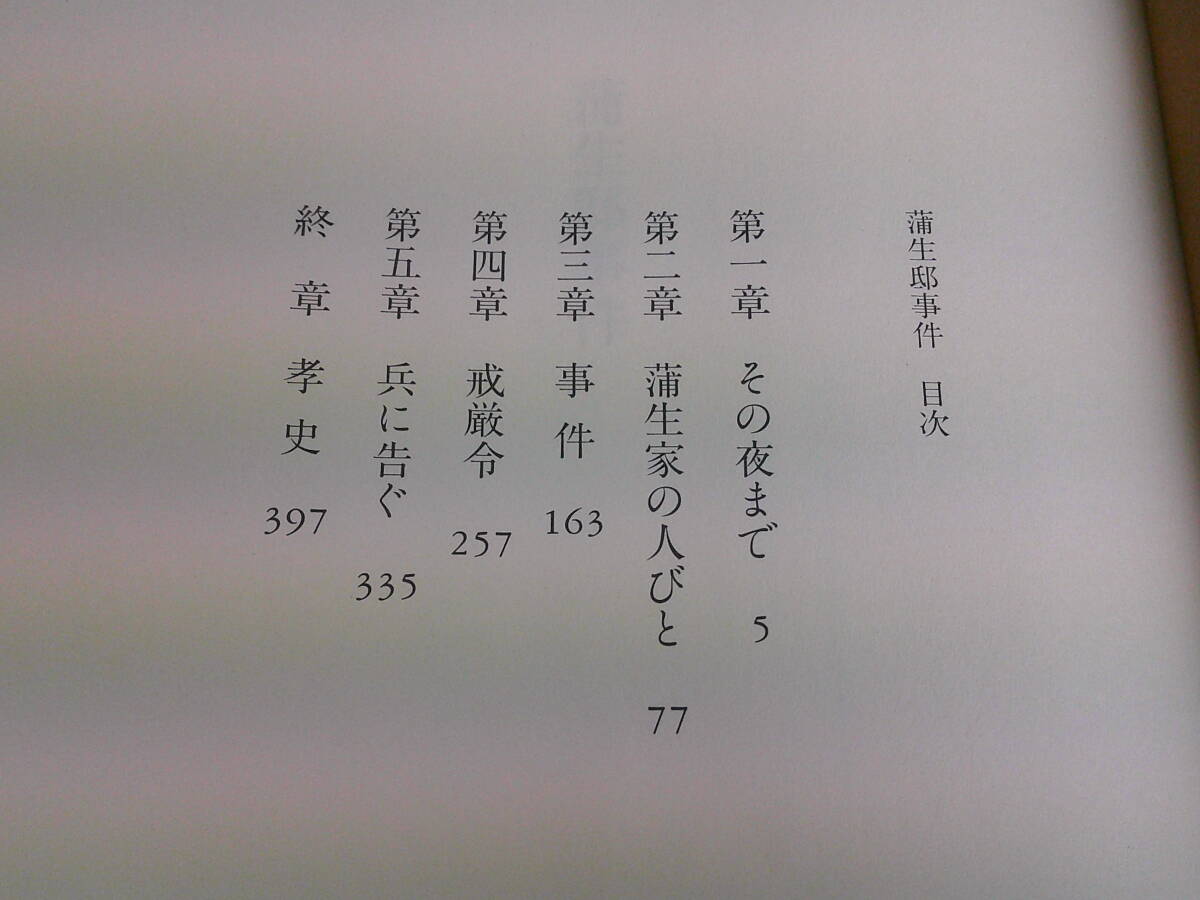 蒲生邸事件 目次
第一章 その夜まで 5
第二章 蒲生家の人びと 77
第三章 事件 163
第四章 戒厳令 257
第五章 兵に告ぐ 335
終章 孝史 397